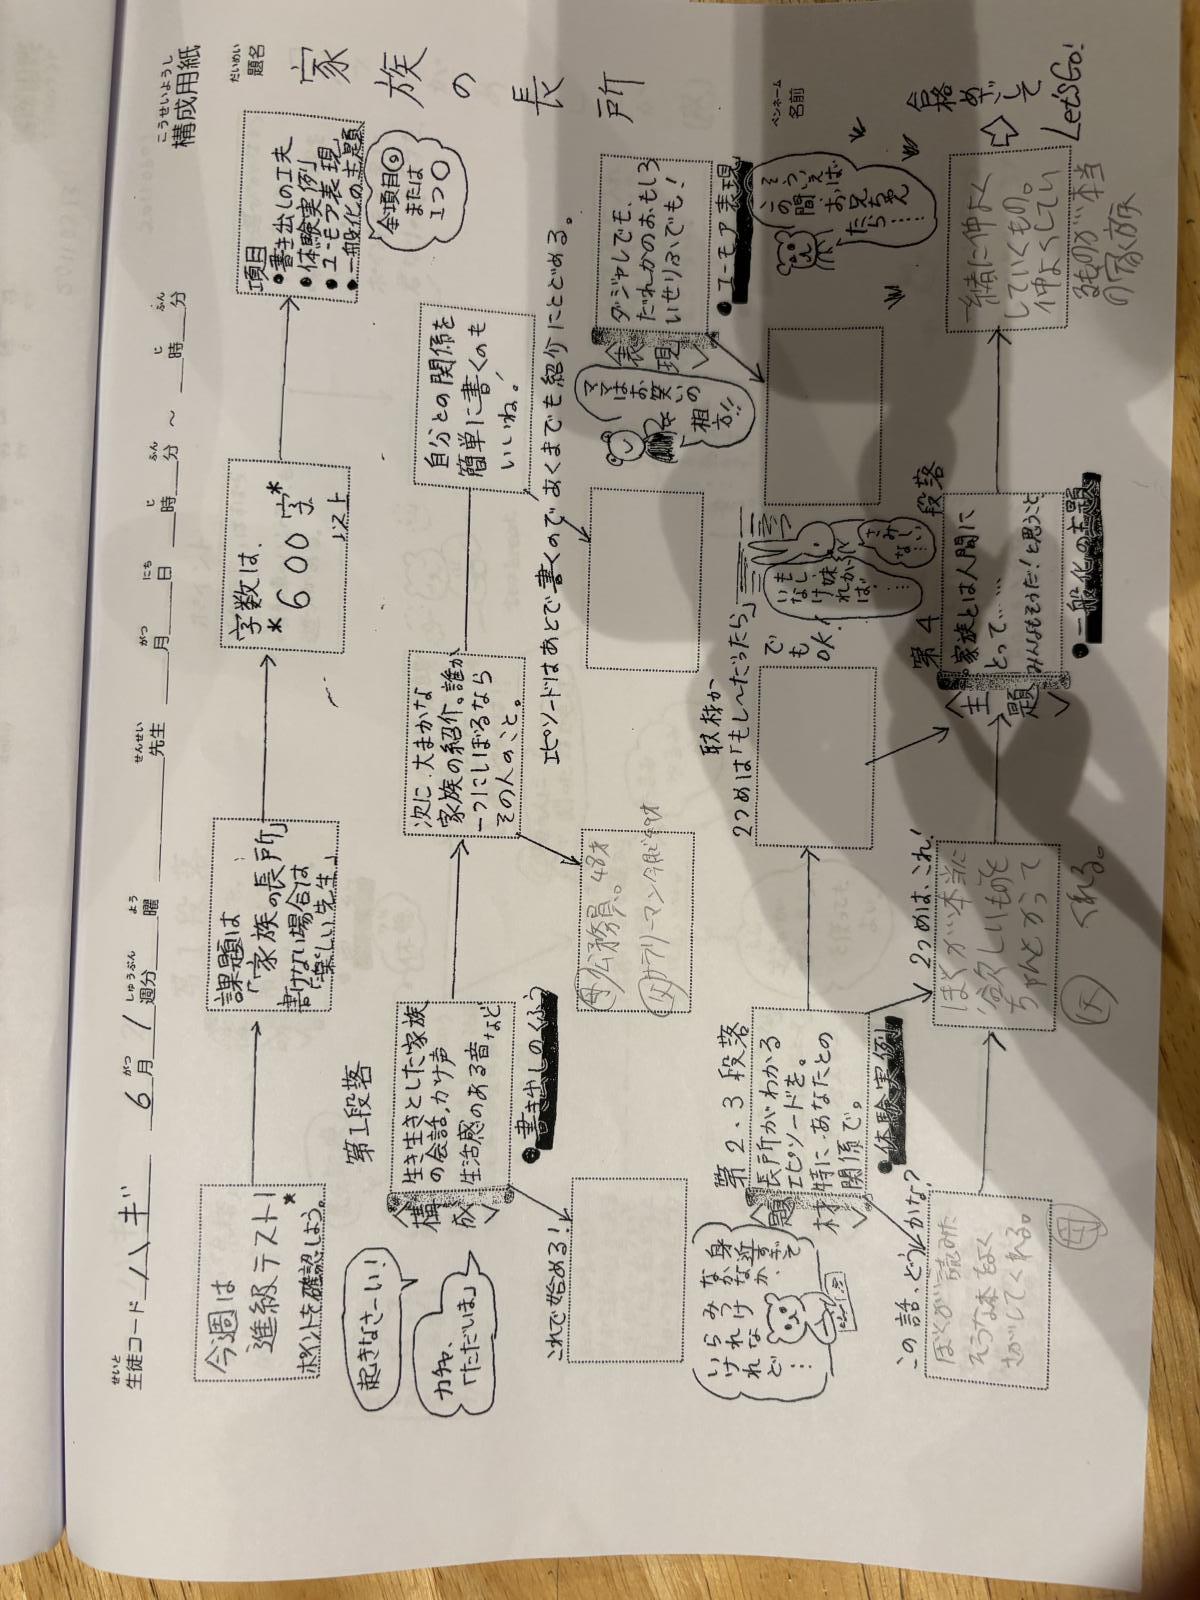 こうせいようし
構成用紙
せいと
生徒コード ハギ 6月 1週分 曜 先生 月 日 時 分 ～ 時 分
がつ しゅうぶん よう せんせい がつ にち じ ふん じ ふん
だいめい
題名
家族の長所
ペンネーム
名前
今週は
進級テスト!
ポイントを確認しよう。
課題は
「家族の長所」
書けない場合は
「楽しい先生」
字数は、
*600字*
以上
項目
●書き出しの工夫
●体験実例
●ユーモア表現
●一般化の主題
全項目◎
または
1つ○
第1段落
起きなさーい!
ガチャ、
「ただいま」
〈構成〉
生き生きとした家族
の会話、かけ声
生活感のある音など
●書き出しのくふう
次に、大まかな
家族の紹介。誰か
一つにしぼるなら
その人のこと。
自分との関係を
簡単に書くのも
いいね!
エピソードはあとで書くので、あくまでも紹介にとどめる。
これで始める!
母 公務員。48才
父 サラリーマン
〈表現〉
ダジャレでも、
だれかのおもしろ
いせりふでも!
●ユーモア表現
ママはお笑いの
相方!!
そういえば
この間、
お兄ちゃん
たら……
第2、3段落
身近すぎて
なかなか、
みつけな
られけれ
いけど…
〈題材〉
長所がわかる
エピソードを。
特に、あなたとの
関係で。
●体験実例
取材か
2つめは「もし〜だったら」
でもOK!
もし妹
がいなければ
……
この話、どうかな?
ぼくが読みた
そうな本をよく
さがしてくれる。
母
2つめはこれ!
ぼくが本当に
欲しいものを
ちゃんとかって
くれる。
父
第4段落
〈主題〉
家族とは人間に
とって……
みんなもそうだ!と思うこと
●一般化の主題
緒に仲よく
していくもの。
仲よくしてい
るものが本当
の家族
合格
めざして
Let'sGo!